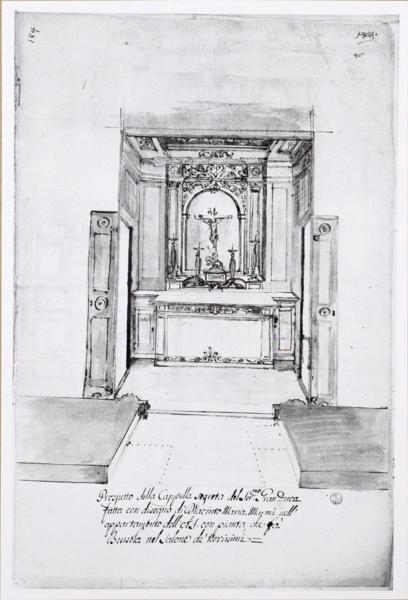 Prospetto della Cappella segreta del Ser.mo Gran Duca
fatta con disegno di Giacinto Maria Marmi nell'
appartamento dell' A.S. con pianta, che fa
Bussola nel Salone de' Novissimi